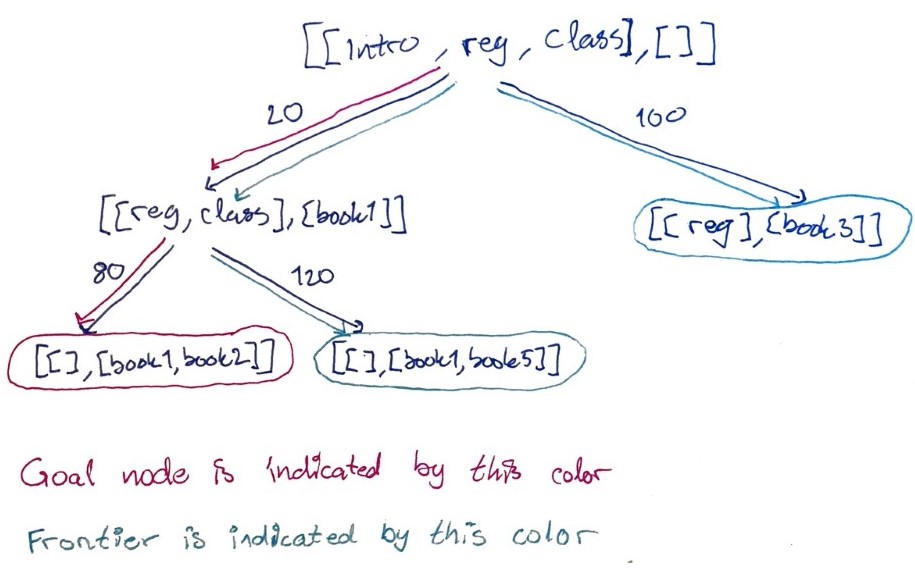 [[Intro, reg, Class],[]]
20
100
[[reg, class],[book1]]
[[reg],[book3]]
80
120
[[],[book1,book2]]
[[],[book1,book5]]
Goal node is indicated by this color
Frontier is indicated by this color